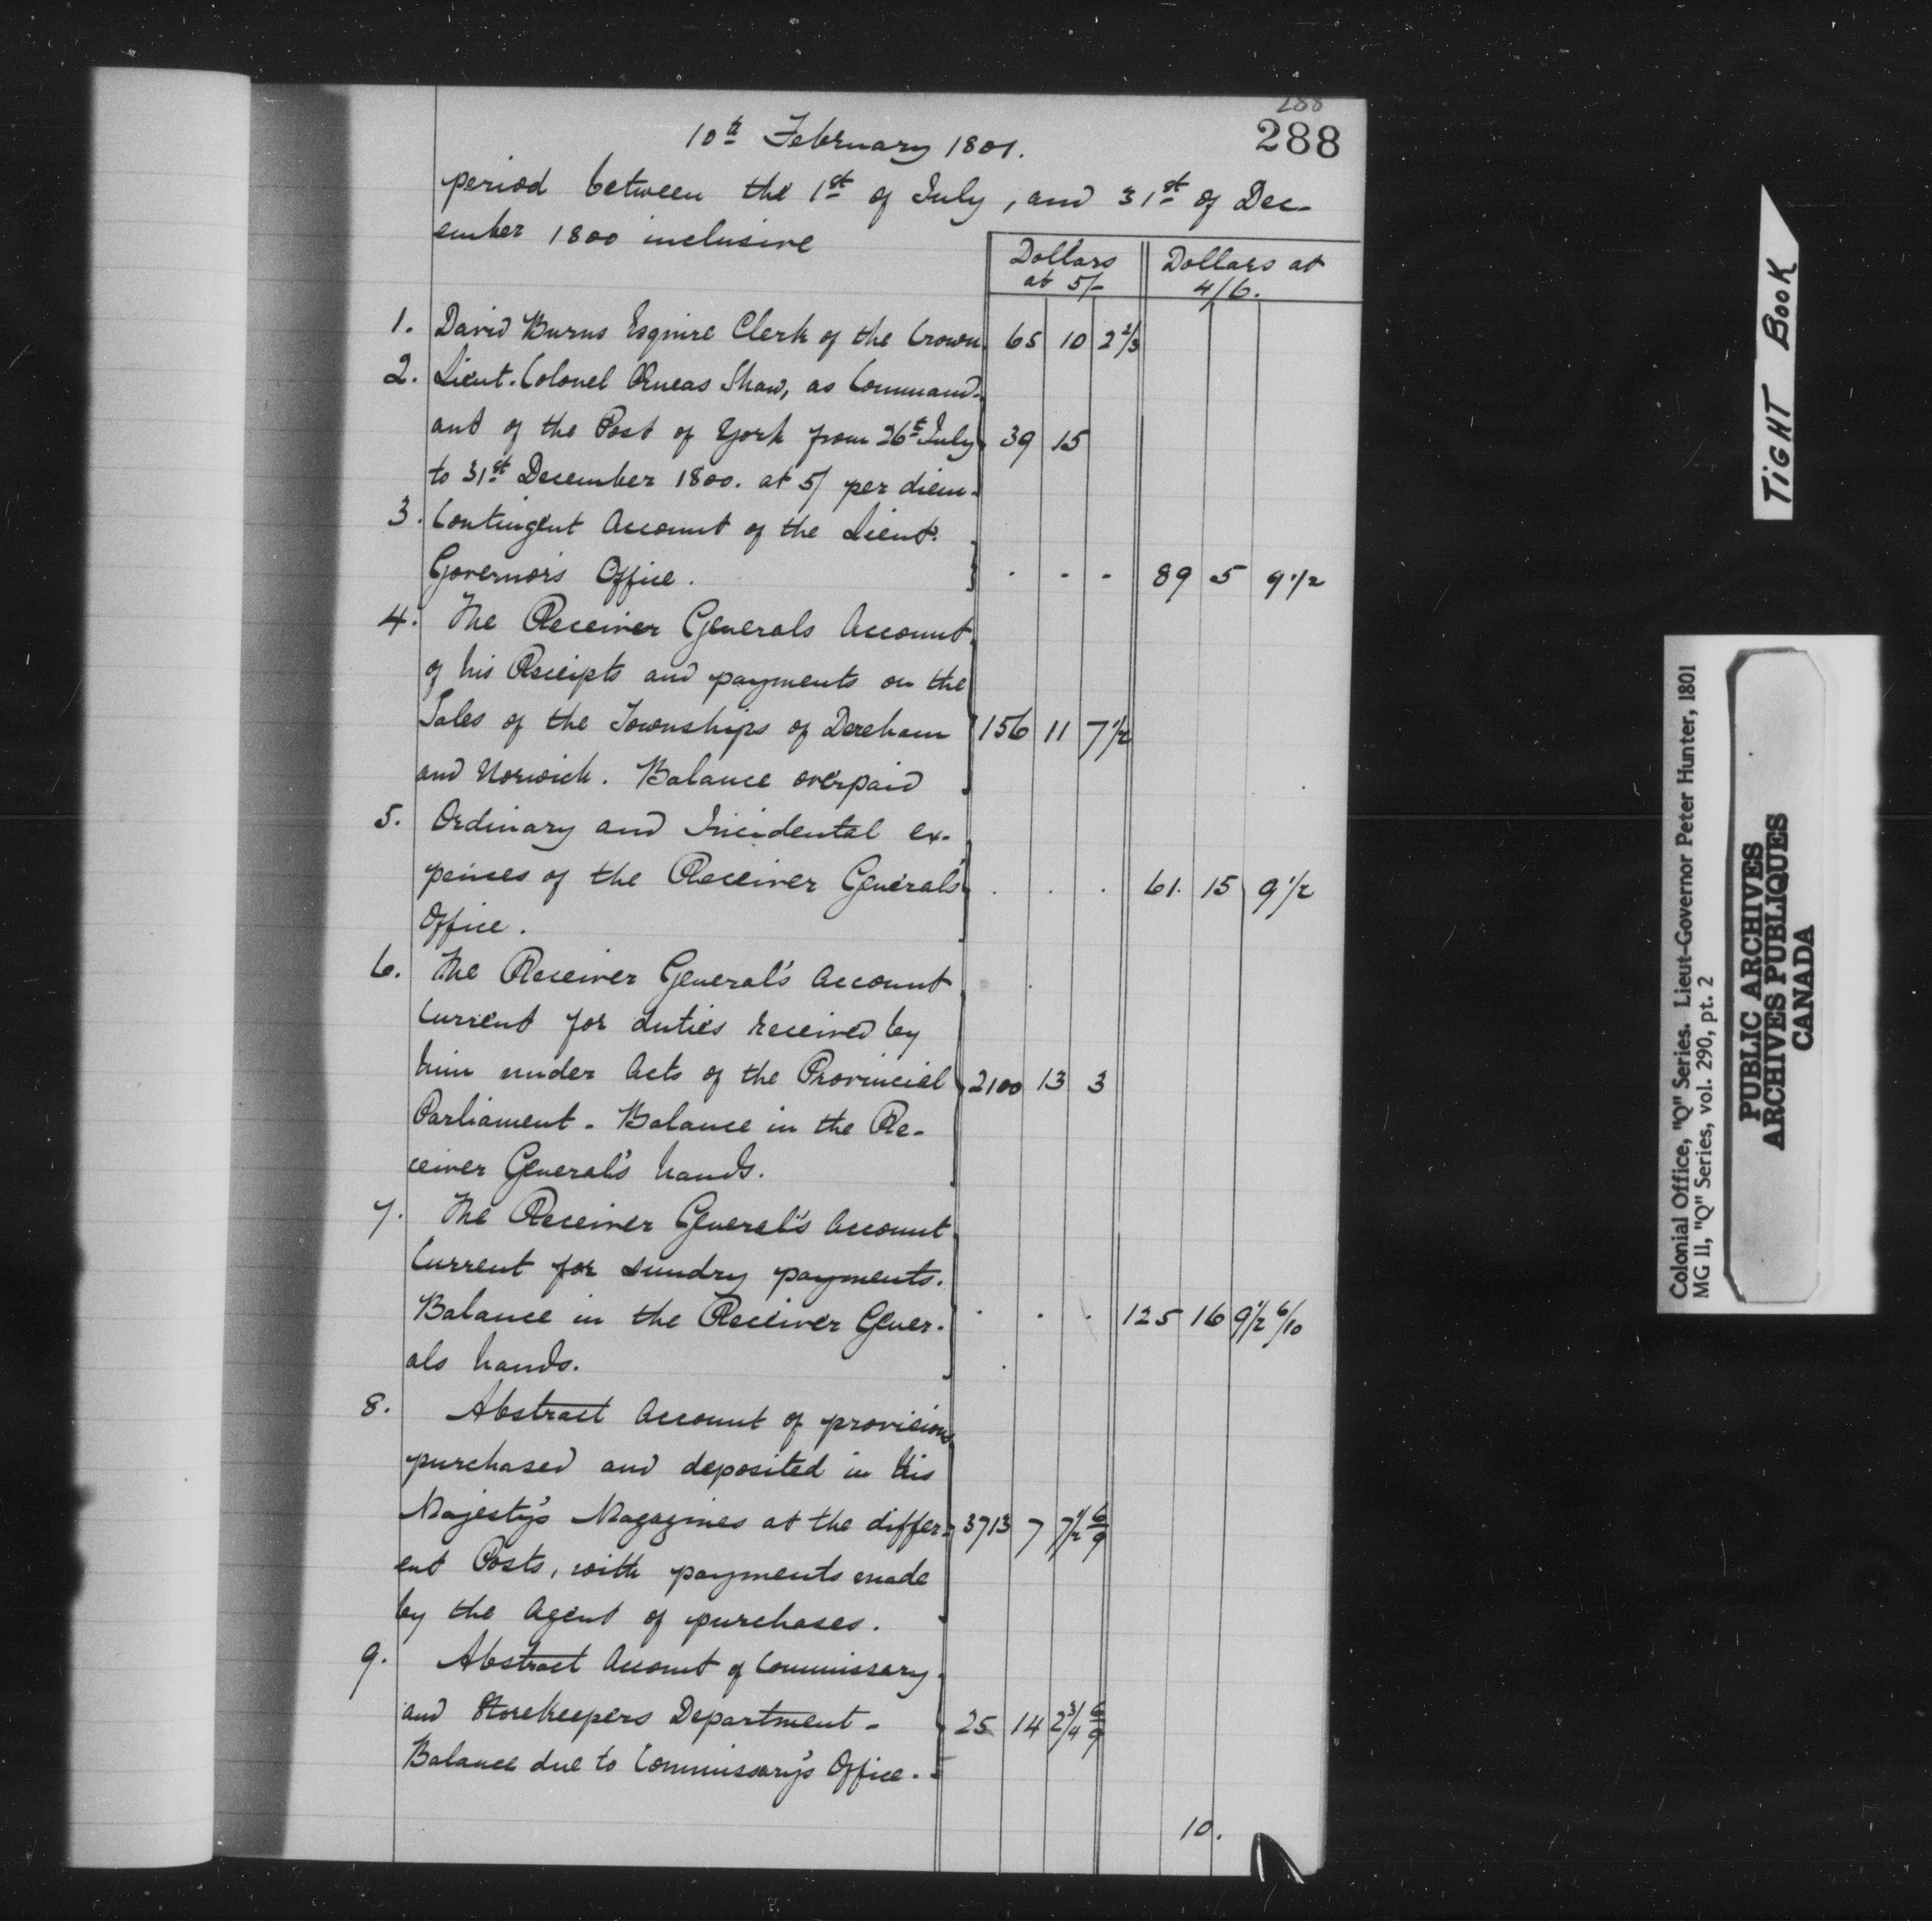 288
288
10th February 1801.
period between the 1st of July, and 31st of Dec-
ember 1800 inclusive
Dollars at 5/-
Dollars at 4/6.
1. David Burns Esquire Clerk of the Crown 65 10 2 2/3
2. Lieut. Colonel Æneas Shaw, as Command-
ant of the Post of York from 26th July 39 15
to 31st December 1800. at 5/ per diem.
3. Contingent Account of the Lieut.
Governor's Office. . - - 89 5 9 1/2
4. The Receiver Generals Account
of his Receipts and payments on the
Sales of the Townships of Dereham 156 11 7 1/2
and Norwich. Balance overpaid
5. Ordinary and Incidental ex-
pences of the Receiver General's . . . 61. 15 9 1/2
Office.
6. The Receiver General's Account
Current for duties received by
him under Acts of the Provincial 2100 13 3
Parliament - Balance in the Re-
ceiver General's hands.
7. The Receiver General's Account
Current for sundry payments.
Balance in the Receiver Gener- . . . 125 16 9 1/2 6/10
als hands.
8. Abstract Account of provisions
purchased and deposited in his
Majesty's Magazines at the differ- 3713 7 7 1/2 6/9
ent Posts, with payments made
by the Agent of purchases.
9. Abstract Account of Commissary
and Storekeepers Department - 25 14 2 3/4 6/9
Balance due to Commissary's Office.
10.
TIGHT BOOK
Colonial Office, "Q" Series. Lieut-Governor Peter Hunter, 1801
MG 11, "Q" Series, vol. 290, pt. 2
PUBLIC ARCHIVES
ARCHIVES PUBLIQUES
CANADA